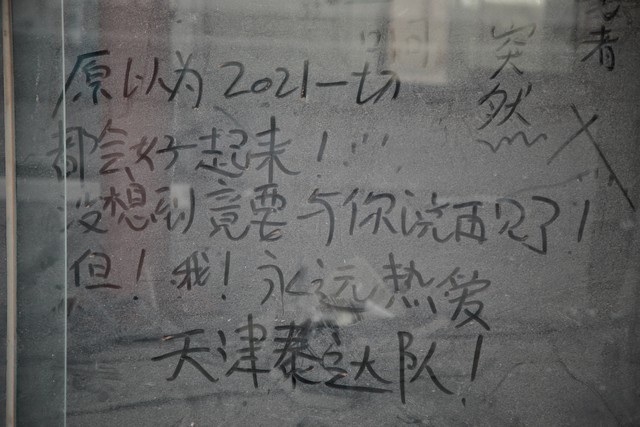 原以为2021一切
都会好起来！！！！
没想到竟要与你浣再见了！
但！我！永远热爱
天津泰达大队！
突然
者